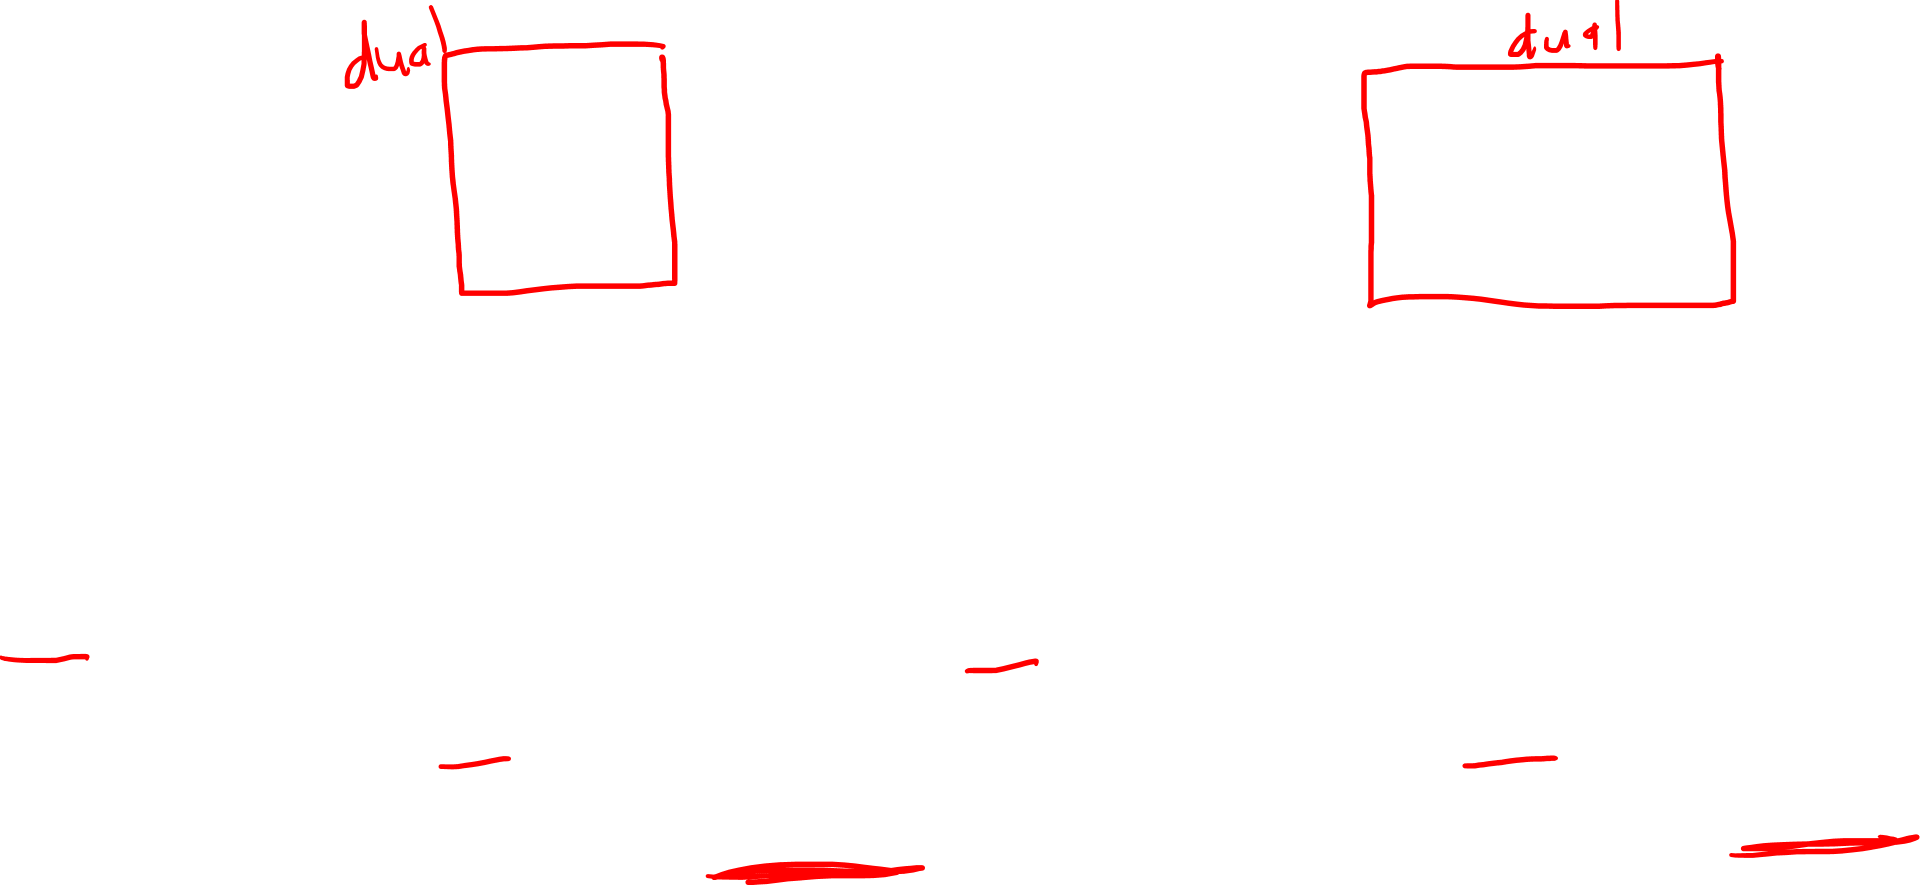 dual
dual